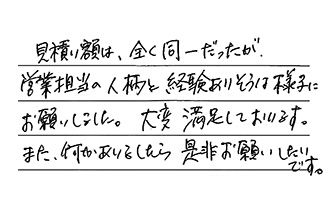 見積り額は、全く同一だったが、
営業担当の人柄と経験ありそうな様子に
お願いしました。大変満足しております。
また、何かありましたら是非お願いしたい
です。